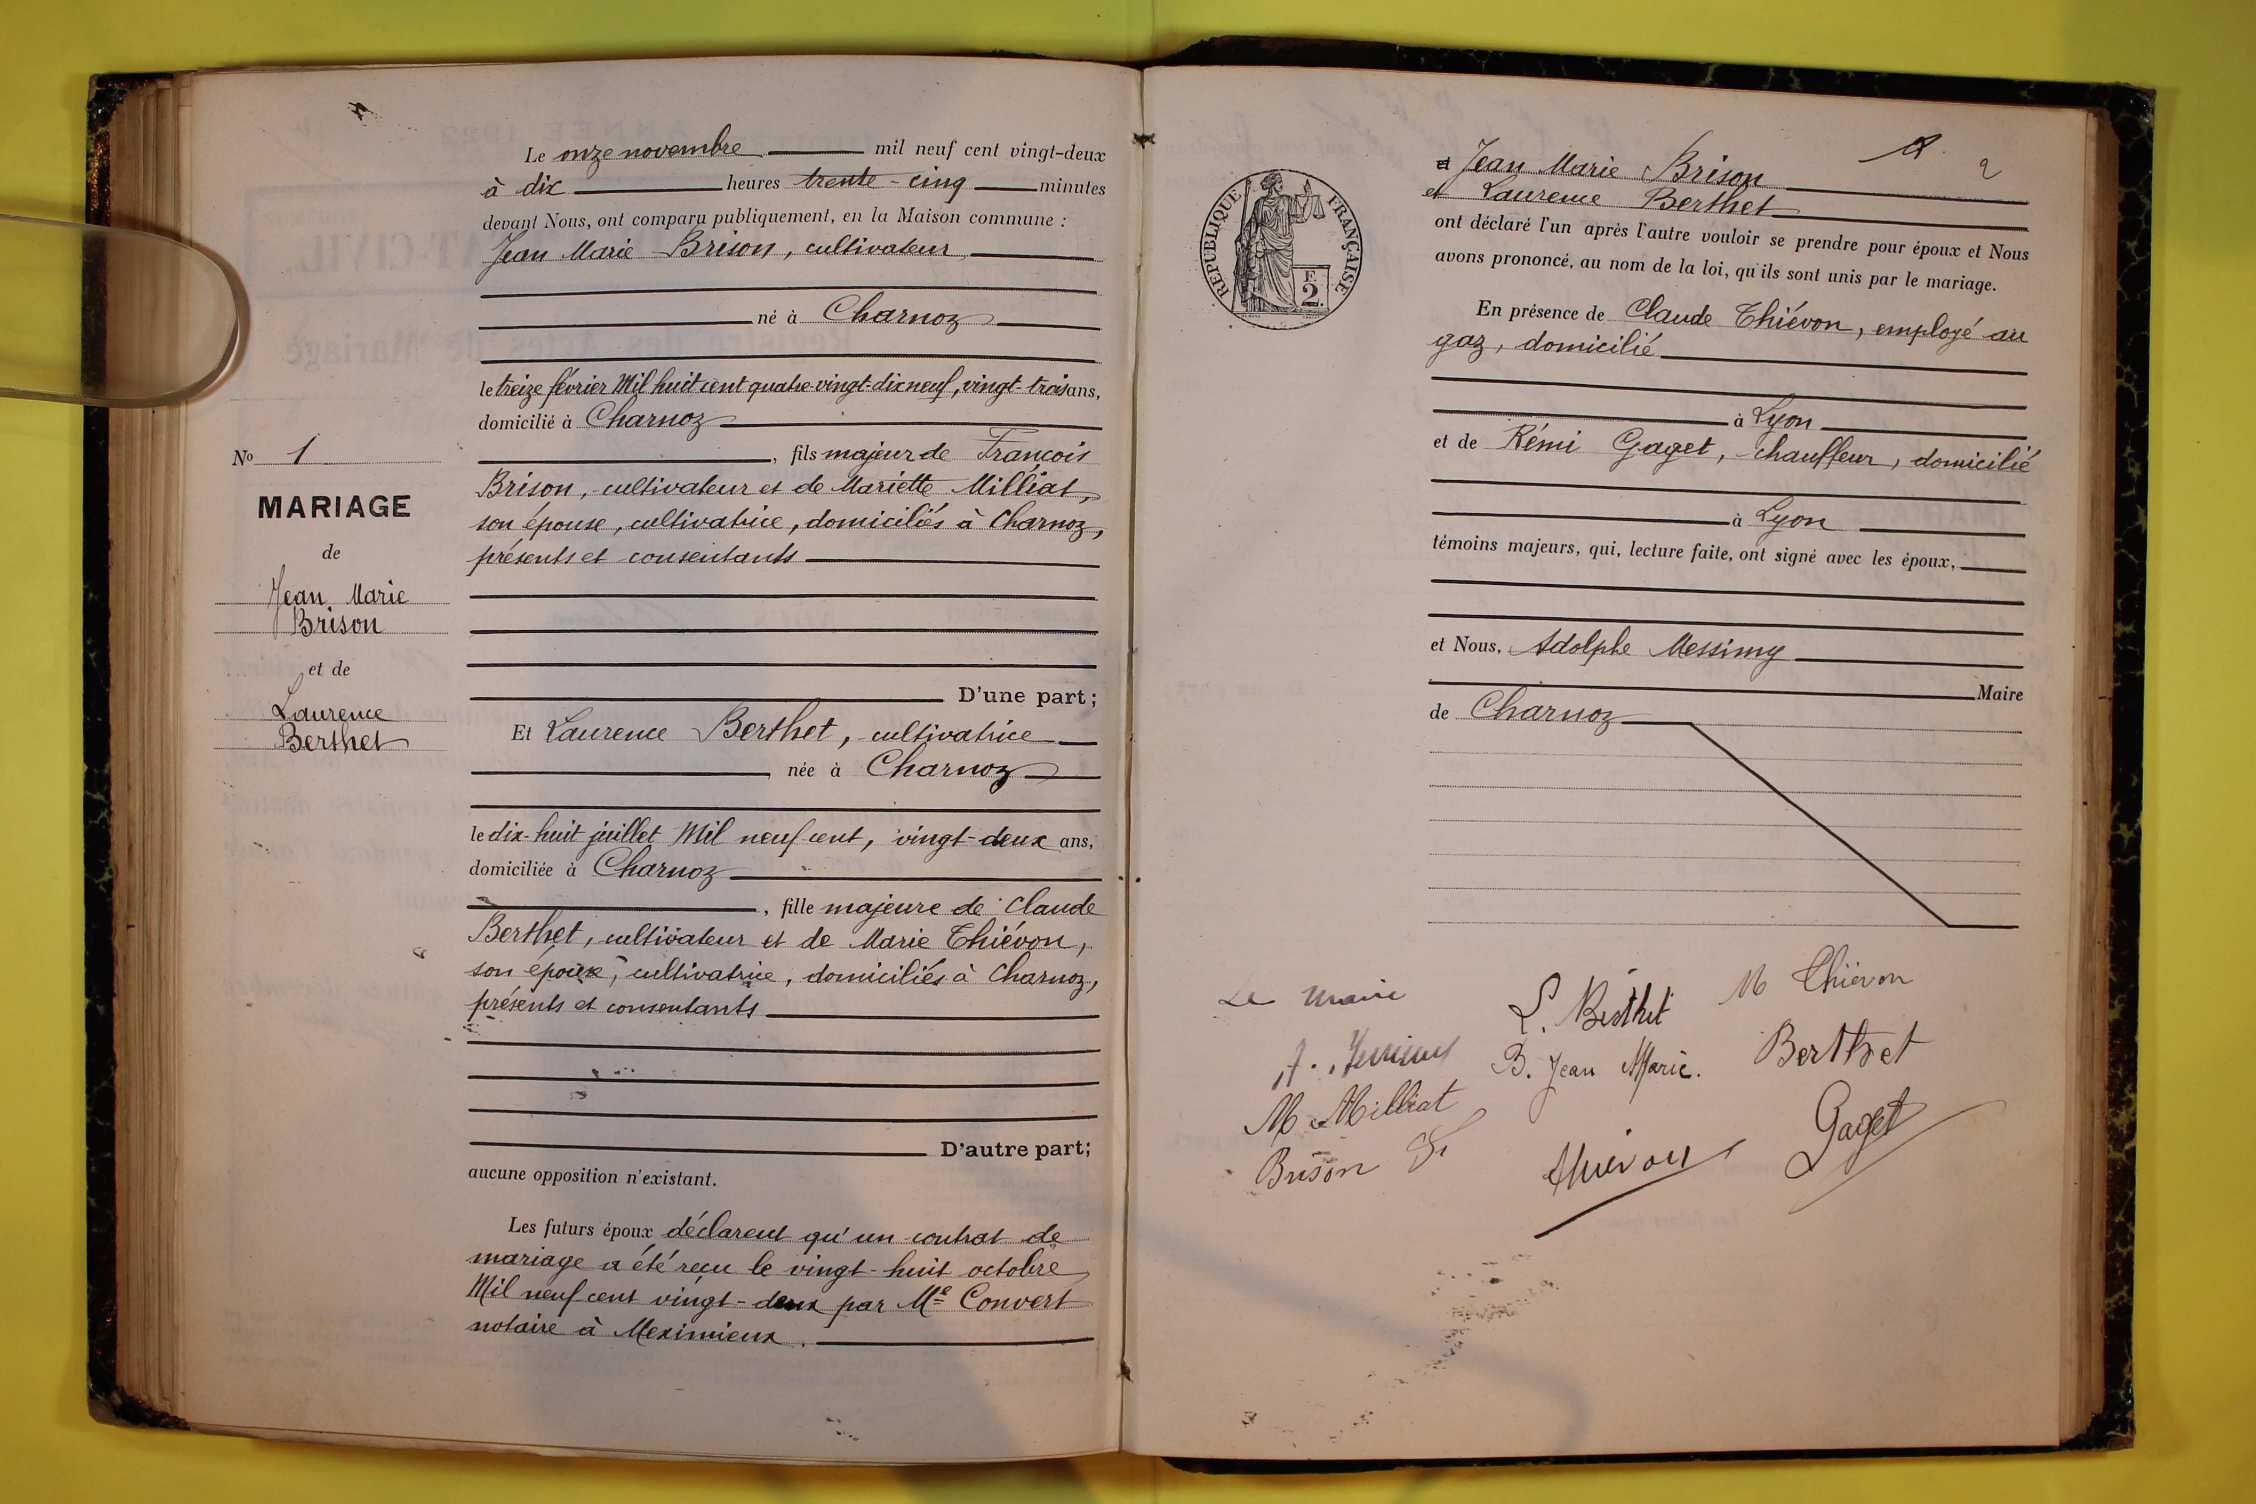 Le onze novembre mil neuf cent vingt-deux
à dix heures trente-cinq minutes
devant Nous, ont comparu publiquement, en la Maison commune :
Jean Marie Brison, cultivateur
né à Charnoz
le treize février Mil huit cent quatre-vingt-dix neuf, vingt-trois ans,
domicilié à Charnoz
, fils majeur de François
Brison, cultivateur et de Mariette Milliat,
son épouse, cultivatrice, domiciliés à Charnoz,
présents et consentants
D'une part;
Et Laurence Berthet, cultivatrice
née à Charnoz
le dix-huit juillet Mil neuf cent, vingt-deux ans,
domiciliée à Charnoz
, fille majeure de Claude
Berthet, cultivateur et de Marie Thiévon,
son épouse, cultivatrice, domiciliés à Charnoz,
présents et consentants
D'autre part;
aucune opposition n'existant.
Les futurs époux déclarent qu'un contrat de
mariage a été reçu le vingt-huit octobre
Mil neuf cent vingt-deux par Me Convert
notaire à Meximieux.
No 1
MARIAGE
de
Jean Marie
Brison
et de
Laurence
Berthet
2
Jean Marie Brison
et Laurence Berthet
ont déclaré l'un après l'autre vouloir se prendre pour époux et Nous
avons prononcé, au nom de la loi, qu'ils sont unis par le mariage.
En présence de Claude Thiévon, employé au
gaz, domicilié
à Lyon
et de Rémi Gaget, chauffeur, domicilié
à Lyon
témoins majeurs, qui, lecture faite, ont signé avec les époux,
et Nous, Adolphe Messimy
Maire
de Charnoz
RÉPUBLIQUE FRANÇAISE
F.
2.
Le Maire
A. Messimy
M Milliat
Brison
L. Berthet
B. Jean Marie.
Thiévon
M Thiévon
Berthet
Gaget